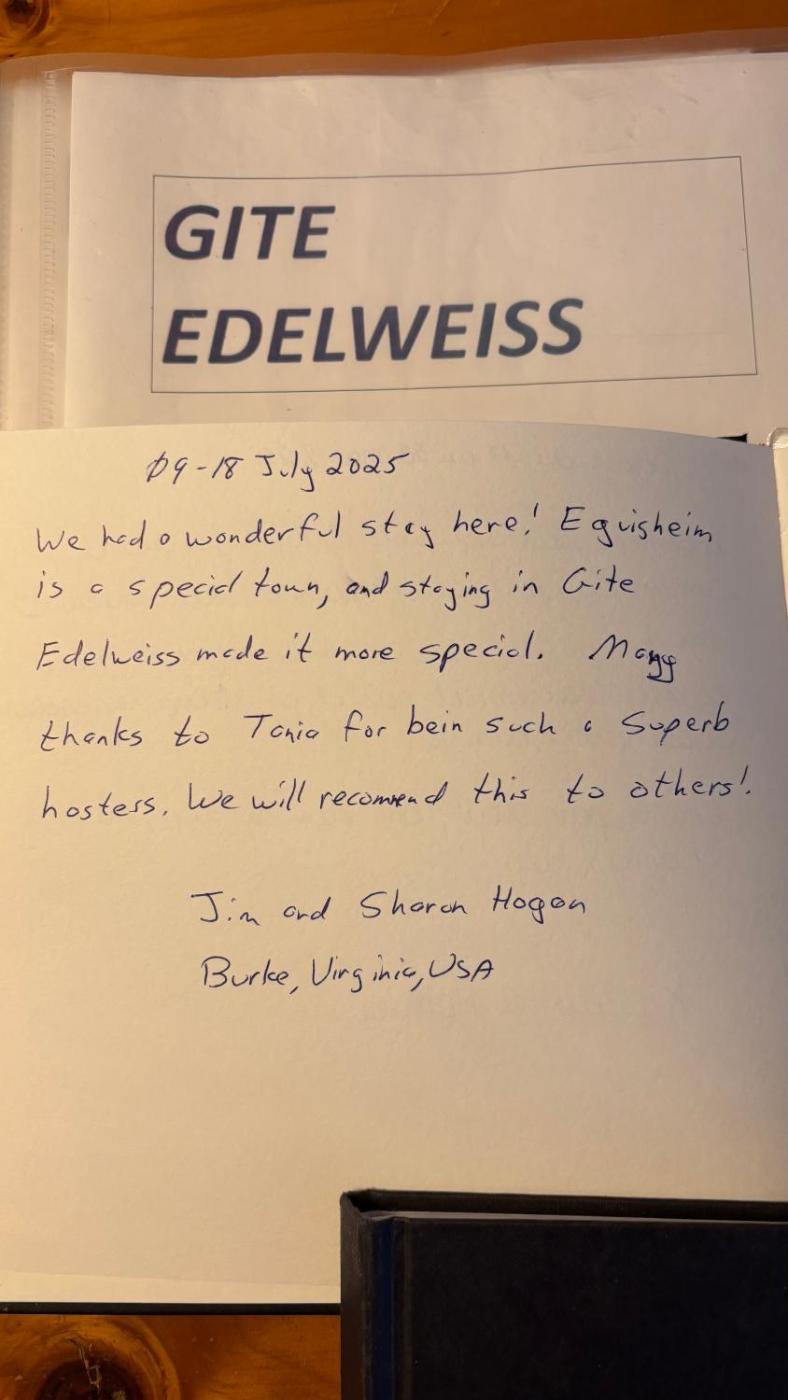 GITE
EDELWEISS
09-18 July 2025
We had a wonderful stay here! Eguisheim
is a special town, and staying in Gite
Edelweiss made it more special. Many
thanks to Tania for bein such a superb
hosters. We will recommend this to others!
Jim and Sharon Hogan
Burke, Virginia, USA